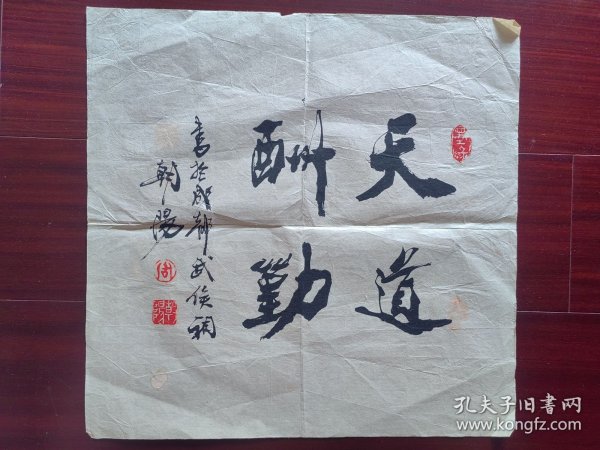 天道
酬勤
書於成都武侯祠
朝陽
周
孔夫子旧書网
www.kongfz.com